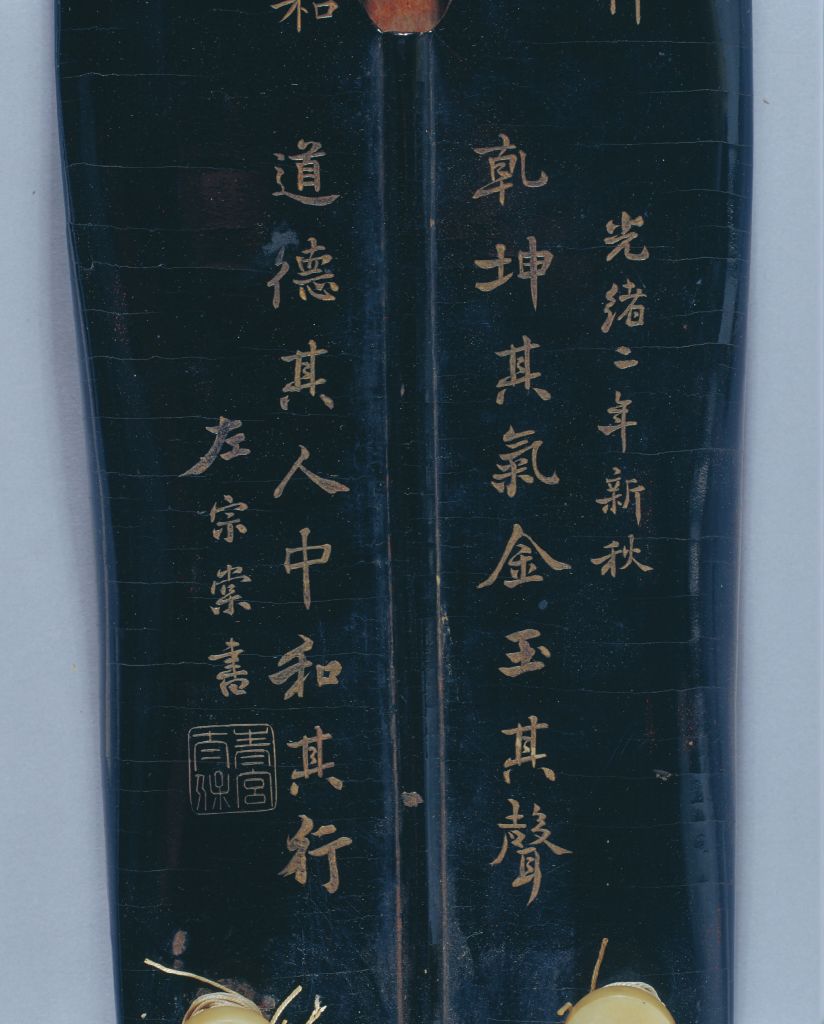 和
光緒二年新秋
乾坤其氣金玉其聲
道德其人中和其行
左宗棠書
青宮
太保